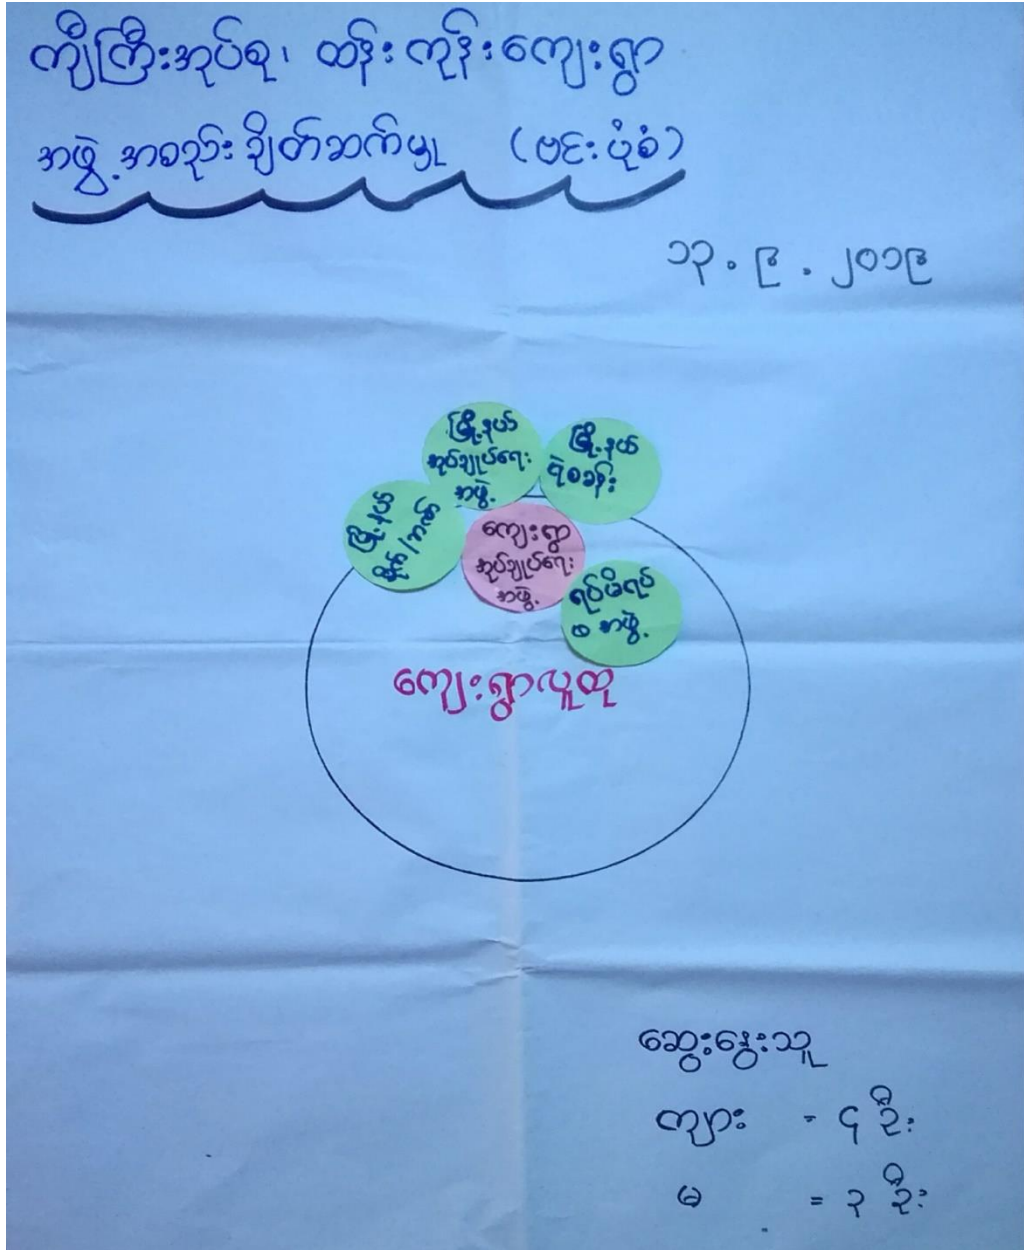 ကျီကြီးအုပ်စု၊ ထန်းကုန်းကျေးရွာ
အဖွဲ့အစည်းချိတ်ဆက်မှု (ဗင်းပုံစံ)
၁၃.၉.၂၀၁၉
မြို့နယ်
အုပ်ချုပ်ရေး
အဖွဲ့
မြို့နယ်
ရဲစခန်း
မြို့နယ်
ကျေးရွာ
အုပ်ချုပ်ရေး
အဖွဲ့
ရပ်မိရပ်
ဖ အဖွဲ့
ကျေးရွာလူထု
ဆွေးနွေးသူ
ကျား - ၄ ဦး
မ = ၃ ဦး